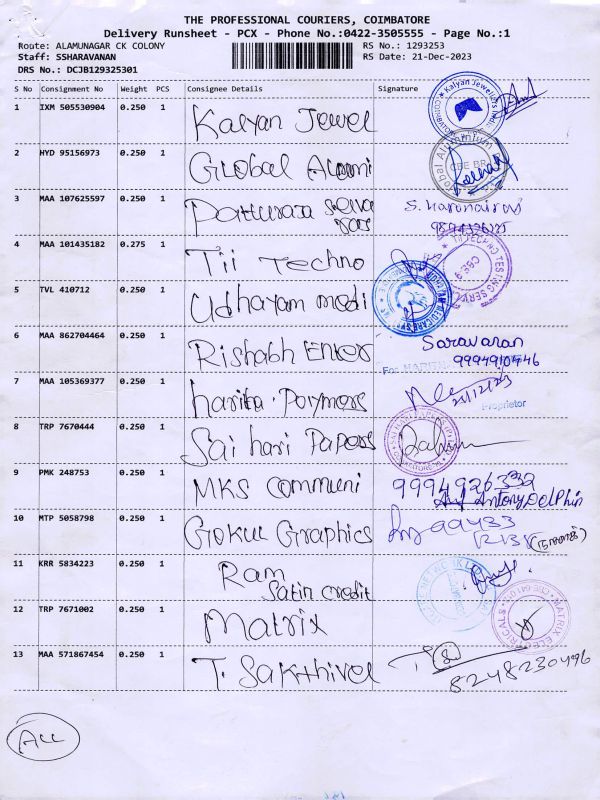 THE PROFESSIONAL COURIERS, COIMBATORE
Delivery Runsheet - PCX - Phone No.:0422-3505555 - Page No.:1
Route: ALAMUNAGAR CK COLONY
RS No.: 1293253
Staff: SSHARAVANAN
RS Date: 21-Dec-2023
DRS No.: DCJB129325301
S No Consignment No Weight PCS Consignee Details Signature
1 IXM 505530904 0.250 1 Kalyan Jewel
2 HYD 95156973 0.250 1 Global Alumi
3 MAA 107625597 0.250 1
4 MAA 101435182 0.275 1 Tii Techno
5 TVL 410712 0.250 1 Udhayam medi
6 MAA 862704464 0.250 1 Rishabh Enter Saravanan
9994910946
7 MAA 105369377 0.250 1 harita Polymers 21/12/23
Proprietor
8 TRP 7670444 0.250 1 Sai hari Papers
9 PMK 248753 0.250 1 MKS communi
Antony Delphin
10 MTP 5058798 0.250 1 Gokul Graphics 99433
11 KRR 5834223 0.250 1 Ram
Satin credit
12 TRP 7671002 0.250 1 Matrix
13 MAA 571867454 0.250 1 T. Sakthivel
8248230496
ALL